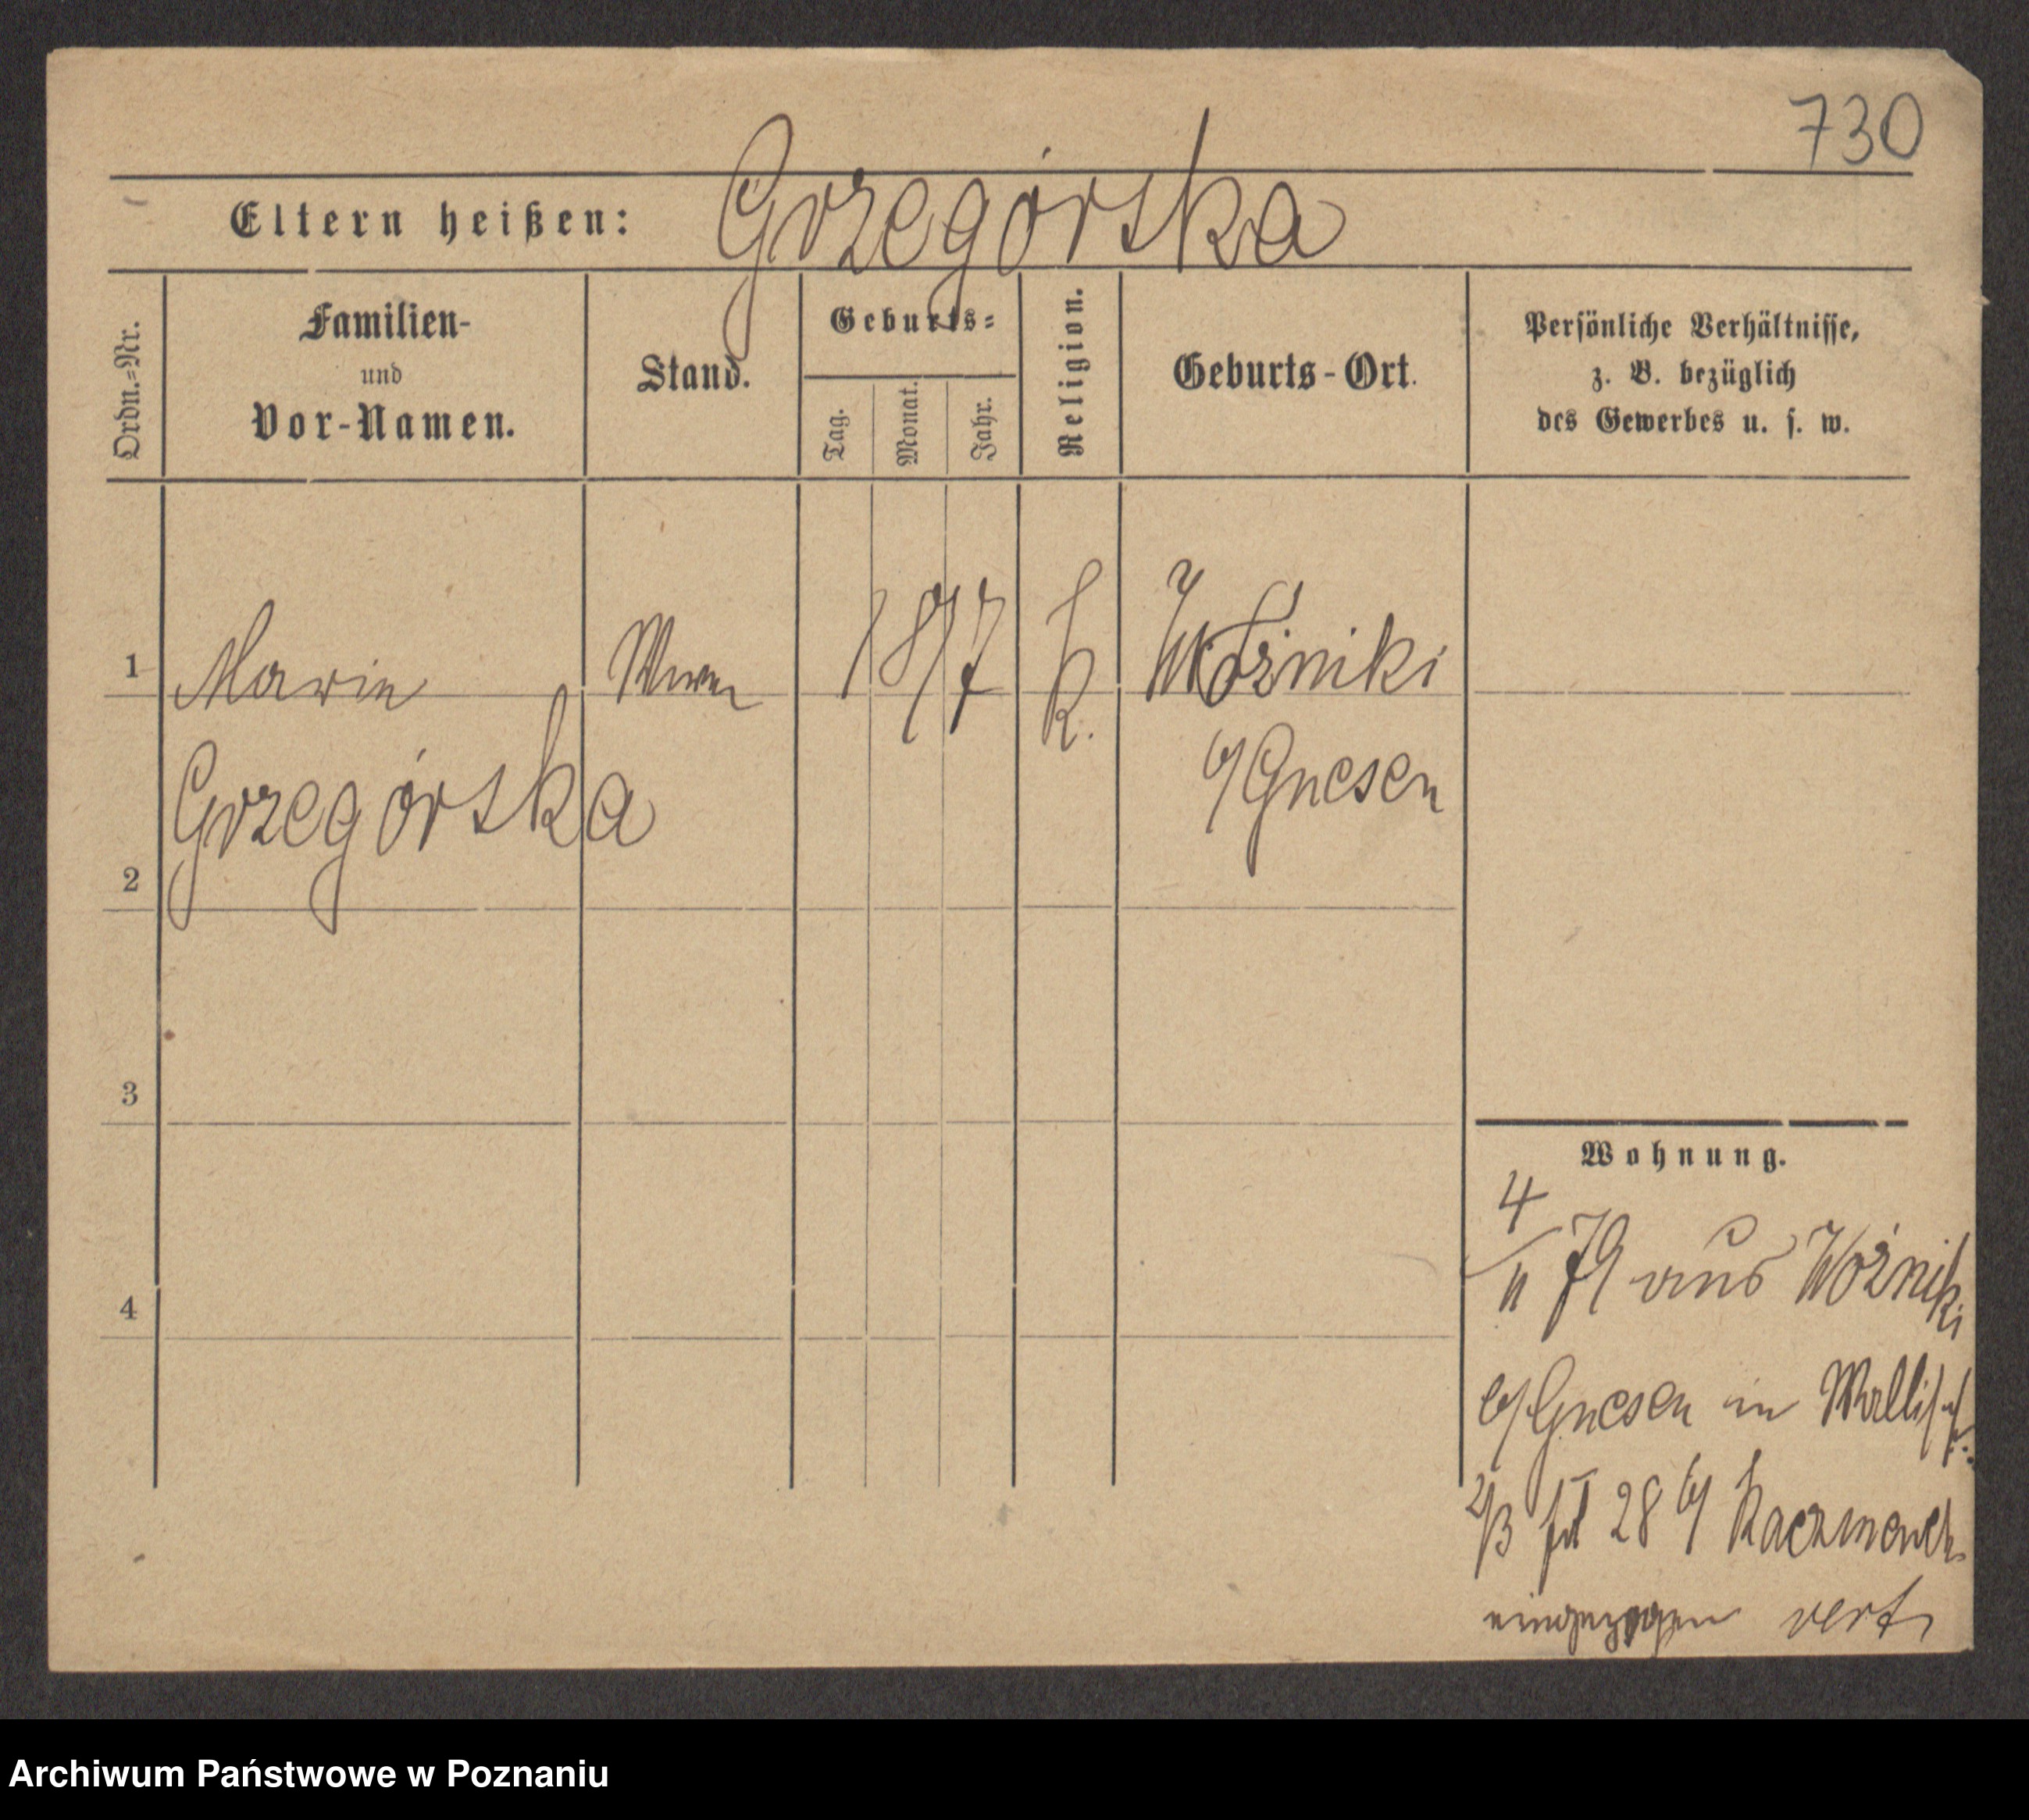 730
Eltern heißen: Grzegórska
Ordn.-Nr.
Familien-
und
Vor-Namen.
Stand.
Geburts-
Tag.
Monat.
Jahr.
Religion.
Geburts-Ort.
Persönliche Verhältnisse,
z. B. bezüglich
des Gewerbes u. s. w.
1 Marie Wwe 1817 k. Woźniki
Grzegórska b/Gnesen
2
3
4
Wohnung.
4/11 79 aus Woźniki
b/Gnesen in Wallisch.
2/3 28 b/ Kaczmarek
eingezogen vert
Archiwum Państwowe w Poznaniu